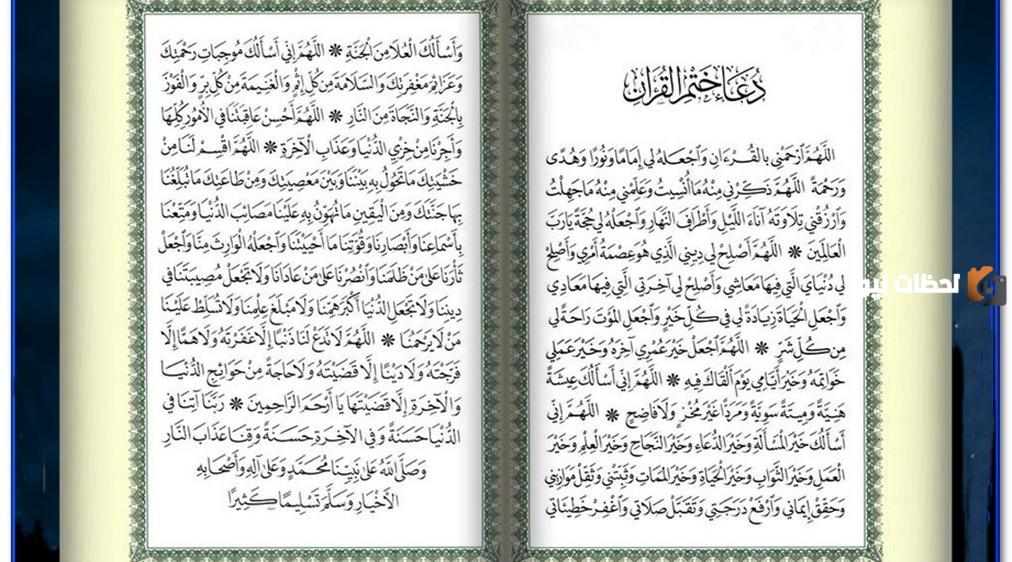 دُعَاءُ خَتْمِ القُرْآن
اللَّهُمَّ ٱرْحَمْنِي بالقُرْءَانِ وَٱجْعَلهُ لِي إِمَامًا وَنُورًا وَهُدًى
وَرَحْمَةً اللَّهُمَّ ذَكِّرْنِي مِنْهُ مَا نُسِّيتُ وَعَلِّمْنِي مِنْهُ مَا جَهِلْتُ
وَٱرْزُقْنِي تِلَاوَتَهُ آنَاءَ اللَّيْلِ وَأَطْرَافَ النَّهَارِ وَٱجْعَلْهُ لِي حُجَّةً يَارَبَّ
العَالَمِينَ * اللَّهُمَّ أَصْلِحْ لِي دِينِي الَّذِي هُوَ عِصْمَةُ أَمْرِي وَأَصْلِحْ
لِي دُنْيَايَ الَّتِي فِيهَا مَعَاشِي وَأَصْلِحْ لِي آخِرَتِي الَّتِي فِيهَا مَعَادِي
وَٱجْعَلِ الحَيَاةَ زِيَادَةً لِي فِي كُلِّ خَيْرٍ وَٱجْعَلِ المَوْتَ رَاحَةً لِي
مِن كُلِّ شَرٍّ * اللَّهُمَّ ٱجْعَلْ خَيْرَ عُمْرِي آخِرَهُ وَخَيْرَ عَمَلِي
خَوَاتِمَهُ وَخَيْرَ أَيَّامِي يَوْمَ أَلْقَاكَ فِيهِ * اللَّهُمَّ إِنِّي أَسْأَلُكَ عِيشَةً
هَنِيَّةً وَمِيتَةً سَوِيَّةً وَمَرَدًّا غَيْرَ مُخْزٍ وَلَا فَاضِحٍ * اللَّهُمَّ إِنِّي
أَسْأَلُكَ خَيْرَ المَسْأَلَةِ وَخَيْرَ الدُّعَاءِ وَخَيْرَ النَّجَاحِ وَخَيْرَ العِلْمِ وَخَيْرَ
العَمَلِ وَخَيْرَ الثَّوَابِ وَخَيْرَ الحَيَاةِ وَخَيْرَ المَمَاتِ وَثَبِّتْنِي وَثَقِّلْ مَوَازِينِي
وَحَقِّقْ إِيمَانِي وَٱرْفَعْ دَرَجَتِي وَتَقَبَّلْ صَلَاتِي وَٱغْفِرْ خَطِيئَاتِي
وَأَسْأَلُكَ العُلَا مِنَ الجَنَّةِ * اللَّهُمَّ إِنِّي أَسْأَلُكَ مُوجِبَاتِ رَحْمَتِكَ
وَعَزَائِمَ مَغْفِرَتِكَ وَالسَّلَامَةَ مِنْ كُلِّ إِثْمٍ وَالغَنِيمَةَ مِنْ كُلِّ بِرٍّ وَالفَوْزَ
بِالجَنَّةِ وَالنَّجَاةَ مِنَ النَّارِ * اللَّهُمَّ أَحْسِنْ عَاقِبَتَنَا فِي الأُمُورِ كُلِّهَا
وَأَجِرْنَا مِنْ خِزْيِ الدُّنْيَا وَعَذَابِ الآخِرَةِ * اللَّهُمَّ اقْسِمْ لَنَا مِنْ
خَشْيَتِكَ مَا تَحُولُ بِهِ بَيْنَنَا وَبَيْنَ مَعْصِيَتِكَ وَمِنْ طَاعَتِكَ مَا تُبَلِّغُنَا
بِهَا جَنَّتَكَ وَمِنَ اليَقِينِ مَا تُهَوِّنُ بِهِ عَلَيْنَا مَصَائِبَ الدُّنْيَا وَمَتِّعْنَا
بِأَسْمَاعِنَا وَأَبْصَارِنَا وَقُوَّتِنَا مَا أَحْيَيْتَنَا وَٱجْعَلْهُ الوَارِثَ مِنَّا وَٱجْعَلْ
ثَأْرَنَا عَلَى مَنْ ظَلَمَنَا وَٱنْصُرْنَا عَلَى مَنْ عَادَانَا وَلَا تَجْعَلْ مُصِيبَتَنَا فِي
دِينِنَا وَلَا تَجْعَلِ الدُّنْيَا أَكْبَرَ هَمِّنَا وَلَا مَبْلَغَ عِلْمِنَا وَلَا تُسَلِّطْ عَلَيْنَا
مَنْ لَا يَرْحَمُنَا * اللَّهُمَّ لَا تَدَعْ لَنَا ذَنْبًا إِلَّا غَفَرْتَهُ وَلَا هَمًّا إِلَّا
فَرَّجْتَهُ وَلَا دَيْنًا إِلَّا قَضَيْتَهُ وَلَا حَاجَةً مِنْ حَوَائِجِ الدُّنْيَا
وَالآخِرَةِ إِلَّا قَضَيْتَهَا يَا أَرْحَمَ الرَّاحِمِينَ * رَبَّنَا آتِنَا فِي
الدُّنْيَا حَسَنَةً وَفِي الآخِرَةِ حَسَنَةً وَقِنَا عَذَابَ النَّارِ
وَصَلَّى اللَّهُ عَلَى نَبِيِّنَا مُحَمَّدٍ وَعَلَى آلِهِ وَأَصْحَابِهِ
الأَخْيَارِ وَسَلَّمَ تَسْلِيمًا كَثِيرًا
لحظات نيوز